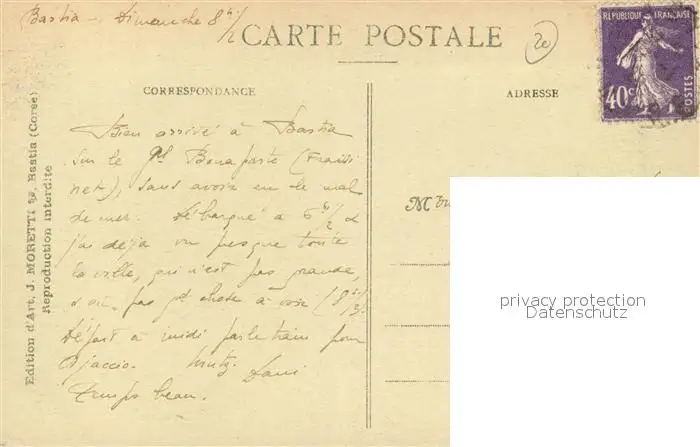 Bastia - Dimanche 8 h 1/2
CARTE POSTALE
20
RÉPUBLIQUE FRANÇAISE
40c
POSTES
CORRESPONDANCE
ADRESSE
Bien arrivé à Bastia
sur le Gal Bonaparte (Fraissi
net), sans avoir eu le mal
de mer. Débarqué à 6 h 1/2 &
j'ai déjà vu presque toute
la ville, qui n'est pas grande,
pas gd chose à voir (8 h 1/2).
Départ à midi par le train pour
Ajaccio.
Temps beau.
M
privacy protection
Datenschutz
Edition d'Art. J. MORETTI, Bastia (Corse)
Reproduction interdite